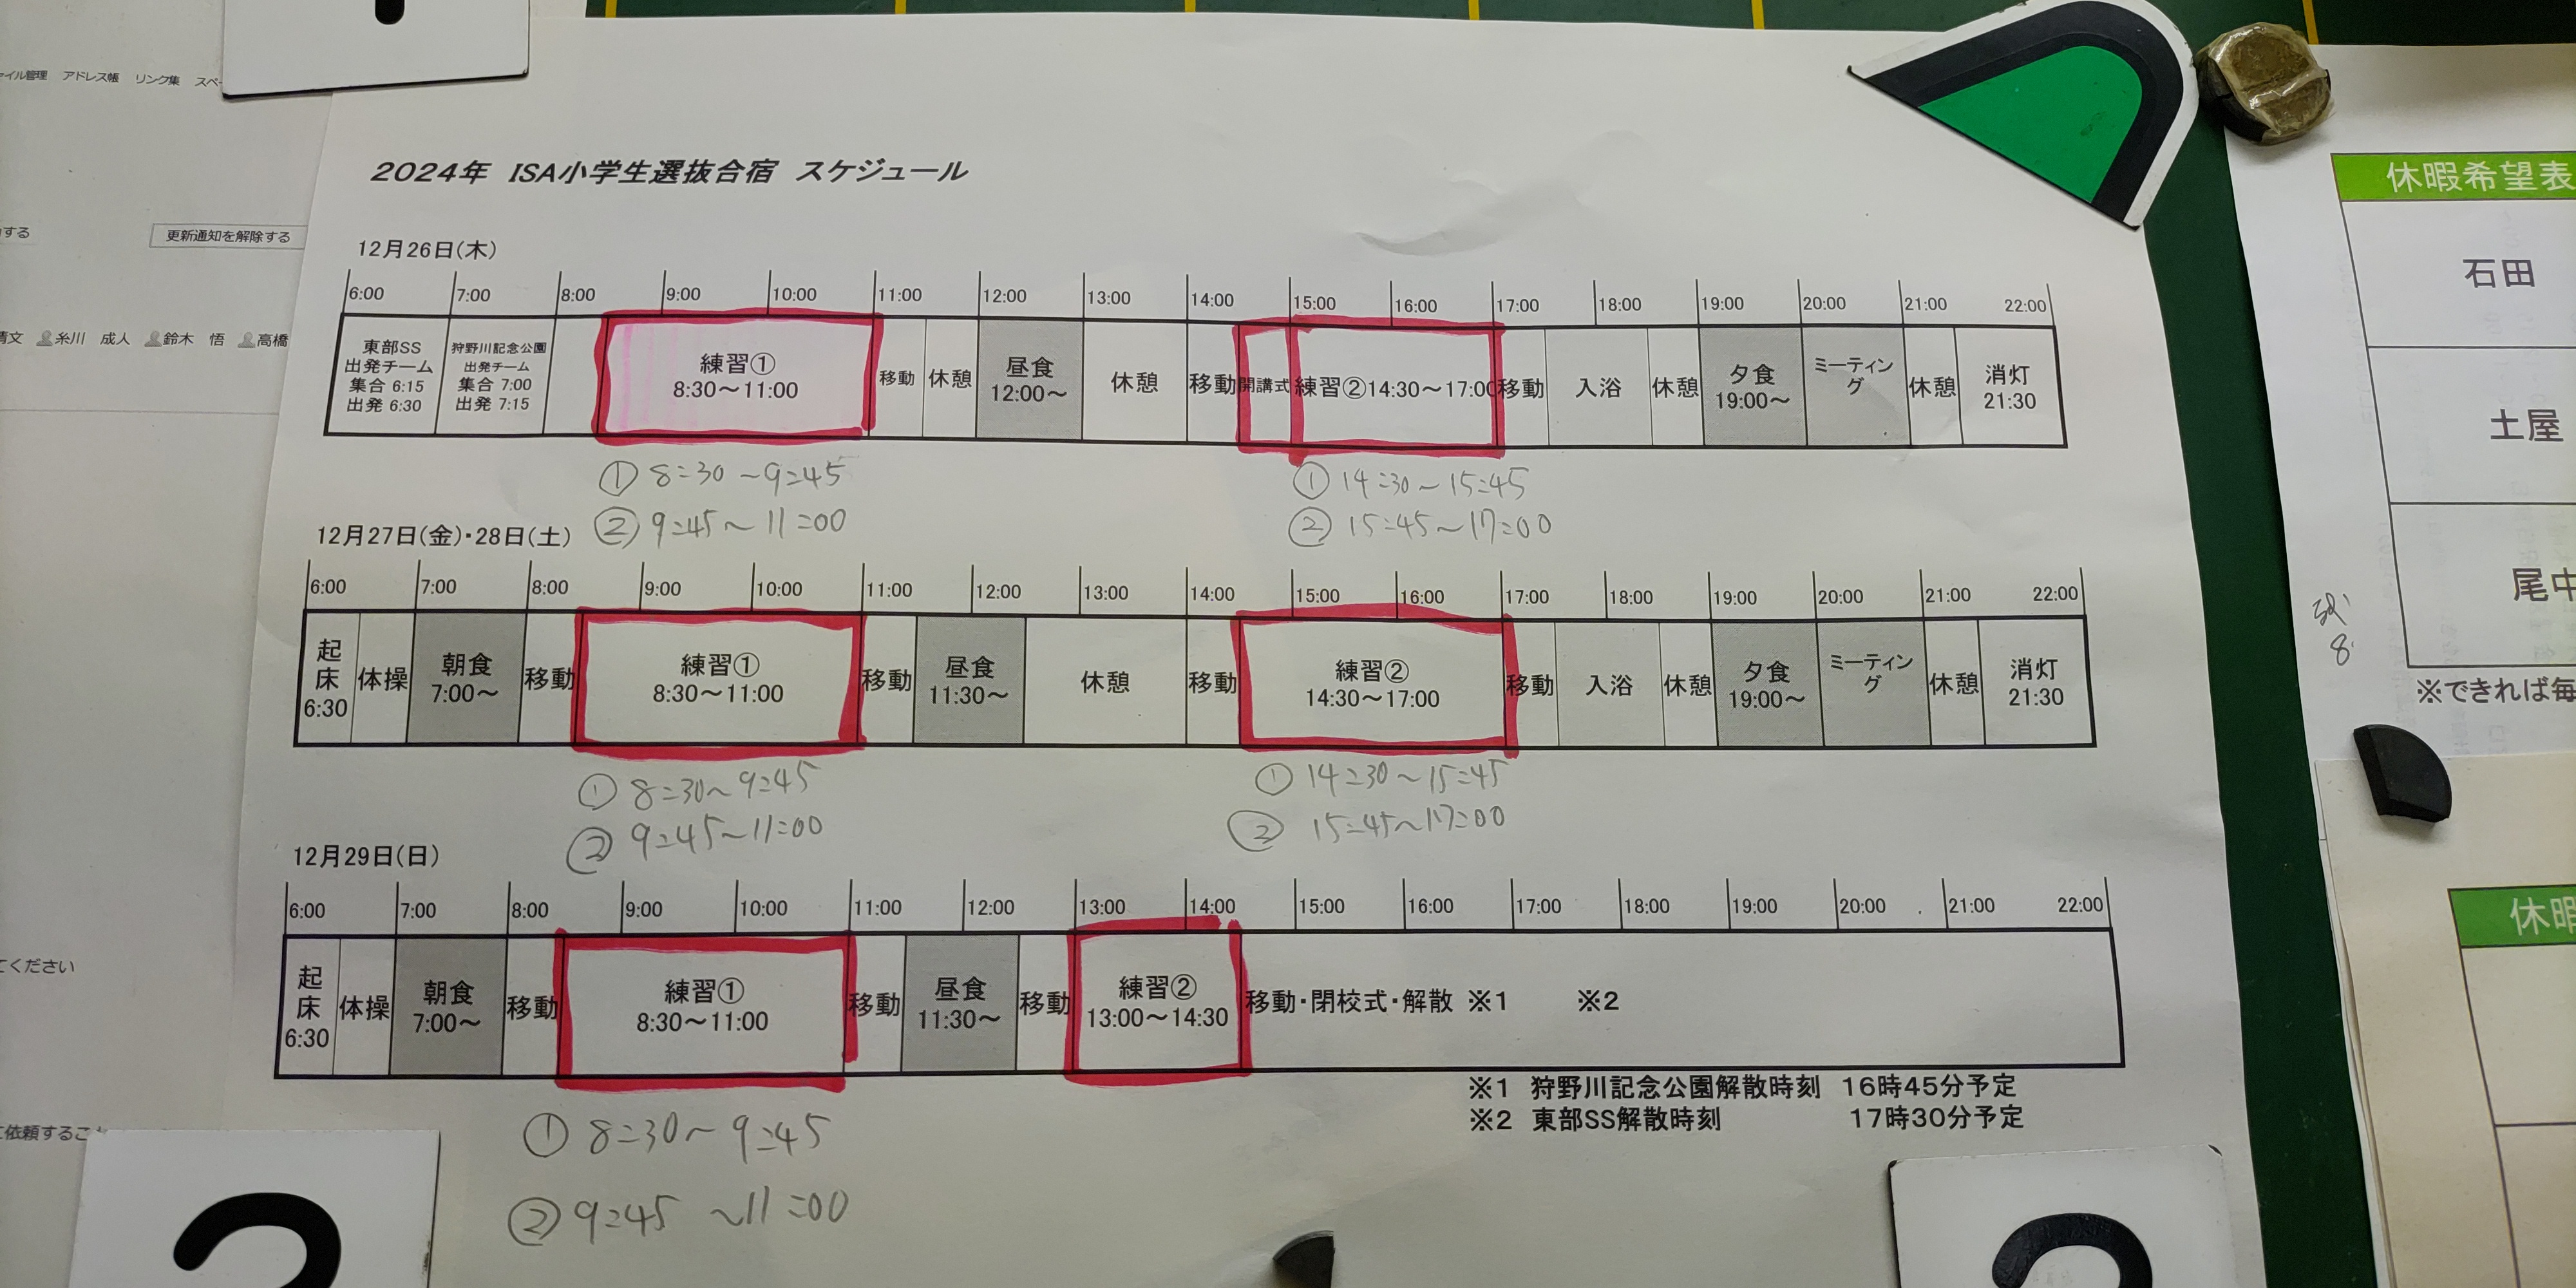 ァイル管理 アドレス帳 リンク集
更新通知を解除する
する
清文 糸川 成人 鈴木 悟 高橋
てください
依頼すること
2024年 ISA小学生選抜合宿 スケジュール
12月26日(木)
6:00 7:00 8:00 9:00 10:00 11:00 12:00 13:00 14:00 15:00 16:00 17:00 18:00 19:00 20:00 21:00 22:00
東部SS
出発チーム
集合 6:15
出発 6:30
狩野川記念公園
出発チーム
集合 7:00
出発 7:15
練習①
8:30～11:00
移動
休憩
昼食
12:00～
休憩
移動
開講式
練習②14:30～17:00
移動
入浴
休憩
夕食
19:00～
ミーティン
グ
休憩
消灯
21:30
① 8:30～9:45
② 9:45～11:00
① 14:30～15:45
② 15:45～17:00
12月27日(金)・28日(土)
6:00 7:00 8:00 9:00 10:00 11:00 12:00 13:00 14:00 15:00 16:00 17:00 18:00 19:00 20:00 21:00 22:00
起
床
6:30
体操
朝食
7:00～
移動
練習①
8:30～11:00
移動
昼食
11:30～
休憩
移動
練習②
14:30～17:00
移動
入浴
休憩
夕食
19:00～
ミーティン
グ
休憩
消灯
21:30
① 8:30～9:45
② 9:45～11:00
① 14:30～15:45
② 15:45～17:00
12月29日(日)
6:00 7:00 8:00 9:00 10:00 11:00 12:00 13:00 14:00 15:00 16:00 17:00 18:00 19:00 20:00 21:00 22:00
起
床
6:30
体操
朝食
7:00～
移動
練習①
8:30～11:00
移動
昼食
11:30～
移動
練習②
13:00～14:30
移動・閉校式・解散 ※1 ※2
※1 狩野川記念公園解散時刻 16時45分予定
※2 東部SS解散時刻 17時30分予定
① 8:30～9:45
② 9:45～11:00
休暇希望表
石田
土屋
尾中
※できれば毎
休暇